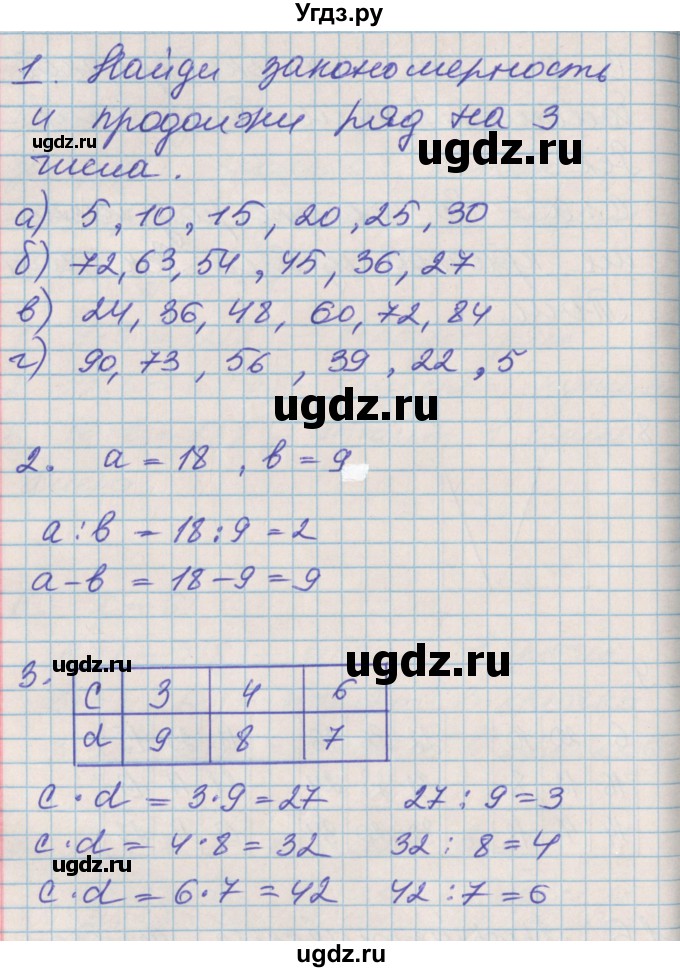 Угдз.ру
1. Найди закономерность
и продолжи ряд на 3
ugdz.ru
ugdz.ru
числа.
а) 5, 10, 15, 20, 25, 30
б) 72, 63, 54, 45, 36, 27
в) 24, 36, 48, 60, 72, 84
г) 90, 73, 56, 39, 22, 5
ugdz.ru
2. a = 18, b = 9
a : b = 18 : 9 = 2
a - b = 18 - 9 = 9
ugdz.ru
ugdz.ru
3. c 3 4 6
d 9 8 7
c · d = 3 · 9 = 27 27 : 9 = 3
c · d = 4 · 8 = 32 32 : 8 = 4
ugdz.ru
ugdz.ru
c · d = 6 · 7 = 42 42 : 7 = 6
ugdz.ru